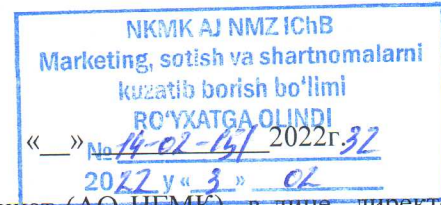 NKMK AJ NMZ IChB
Marketing, sotish va shartnomalarni
kuzatib borish bo'limi
RO'YXATGA OLINDI
«__» № 14-02-151 2022г. 32
2022 y « 3 » 02
(АО НГМК), в лице директ